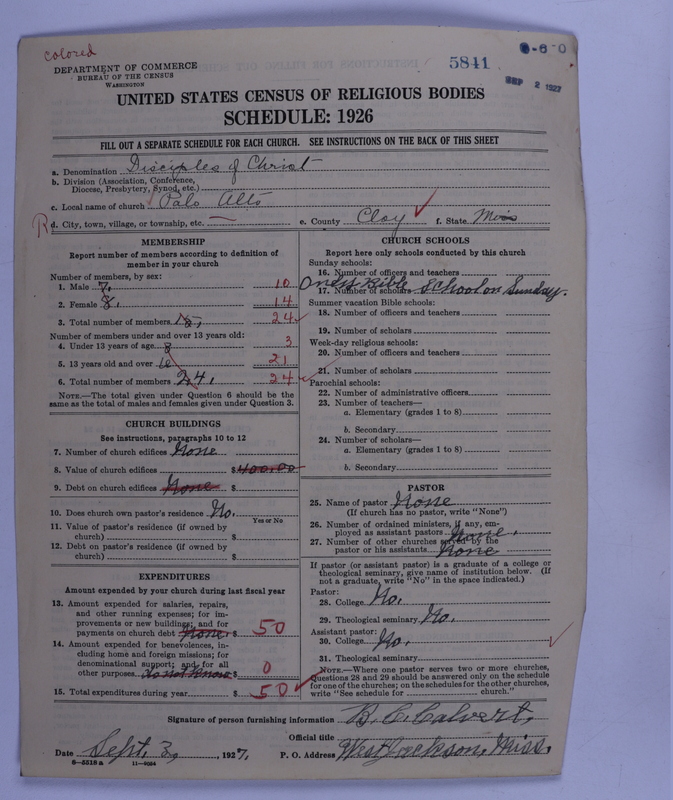 colored
DEPARTMENT OF COMMERCE
BUREAU OF THE CENSUS
WASHINGTON
5841
SEP 2 1927
UNITED STATES CENSUS OF RELIGIOUS BODIES
SCHEDULE: 1926
FILL OUT A SEPARATE SCHEDULE FOR EACH CHURCH. SEE INSTRUCTIONS ON THE BACK OF THIS SHEET
a. Denomination Disciples of Christ
b. Division (Association, Conference,
Diocese, Presbytery, Synod, etc.)
c. Local name of church Palo Alto
R d. City, town, village, or township, etc. e. County Clay f. State Miss
MEMBERSHIP
Report number of members according to definition of
member in your church
Number of members, by sex:
1. Male 7, 10
2. Female 8, 14
3. Total number of members 15, 24
Number of members under and over 13 years old:
4. Under 13 years of age 8 3
5. 13 years old and over 21
6. Total number of members 24, 24
NOTE.—The total given under Question 6 should be the
same as the total of males and females given under Question 3.
CHURCH BUILDINGS
See instructions, paragraphs 10 to 12
7. Number of church edifices None
8. Value of church edifices $ 400.00
9. Debt on church edifices None $
10. Does church own pastor's residence? No.
Yes or No
11. Value of pastor's residence (if owned by
church) $
12. Debt on pastor's residence (if owned by
church) $
EXPENDITURES
Amount expended by your church during last fiscal year
13. Amount expended for salaries, repairs,
and other running expenses; for im-
provements or new buildings; and for
payments on church debt None, $ 50
14. Amount expended for benevolences, in-
cluding home and foreign missions; for
denominational support; and for all
other purposes do not know $ 0
15. Total expenditures during year $ 50
CHURCH SCHOOLS
Report here only schools conducted by this church
Sunday schools:
16. Number of officers and teachers
Only Bible School on Sunday.
17. Number of scholars
Summer vacation Bible schools:
18. Number of officers and teachers
19. Number of scholars
Week-day religious schools:
20. Number of officers and teachers
21. Number of scholars
Parochial schools:
22. Number of administrative officers
23. Number of teachers—
a. Elementary (grades 1 to 8)
b. Secondary
24. Number of scholars—
a. Elementary (grades 1 to 8)
b. Secondary
PASTOR
25. Name of pastor None
(If church has no pastor, write "None")
26. Number of ordained ministers, if any, em-
ployed as assistant pastors None,
27. Number of other churches served by the
pastor or his assistants None
If pastor (or assistant pastor) is a graduate of a college or
theological seminary, give name of institution below. (If
not a graduate, write "No" in the space indicated.)
Pastor:
28. College No,
29. Theological seminary No.
Assistant pastor:
30. College No,
31. Theological seminary
NOTE.—Where one pastor serves two or more churches,
Questions 28 and 29 should be answered only on the schedule
for one of the churches; on the schedules for the other churches,
write "See schedule for church."
Signature of person furnishing information B. C. Calvert,
Official title
Date Sept. 3, , 1927, P. O. Address West Jackson, Miss.
8—5518 a 11—9084